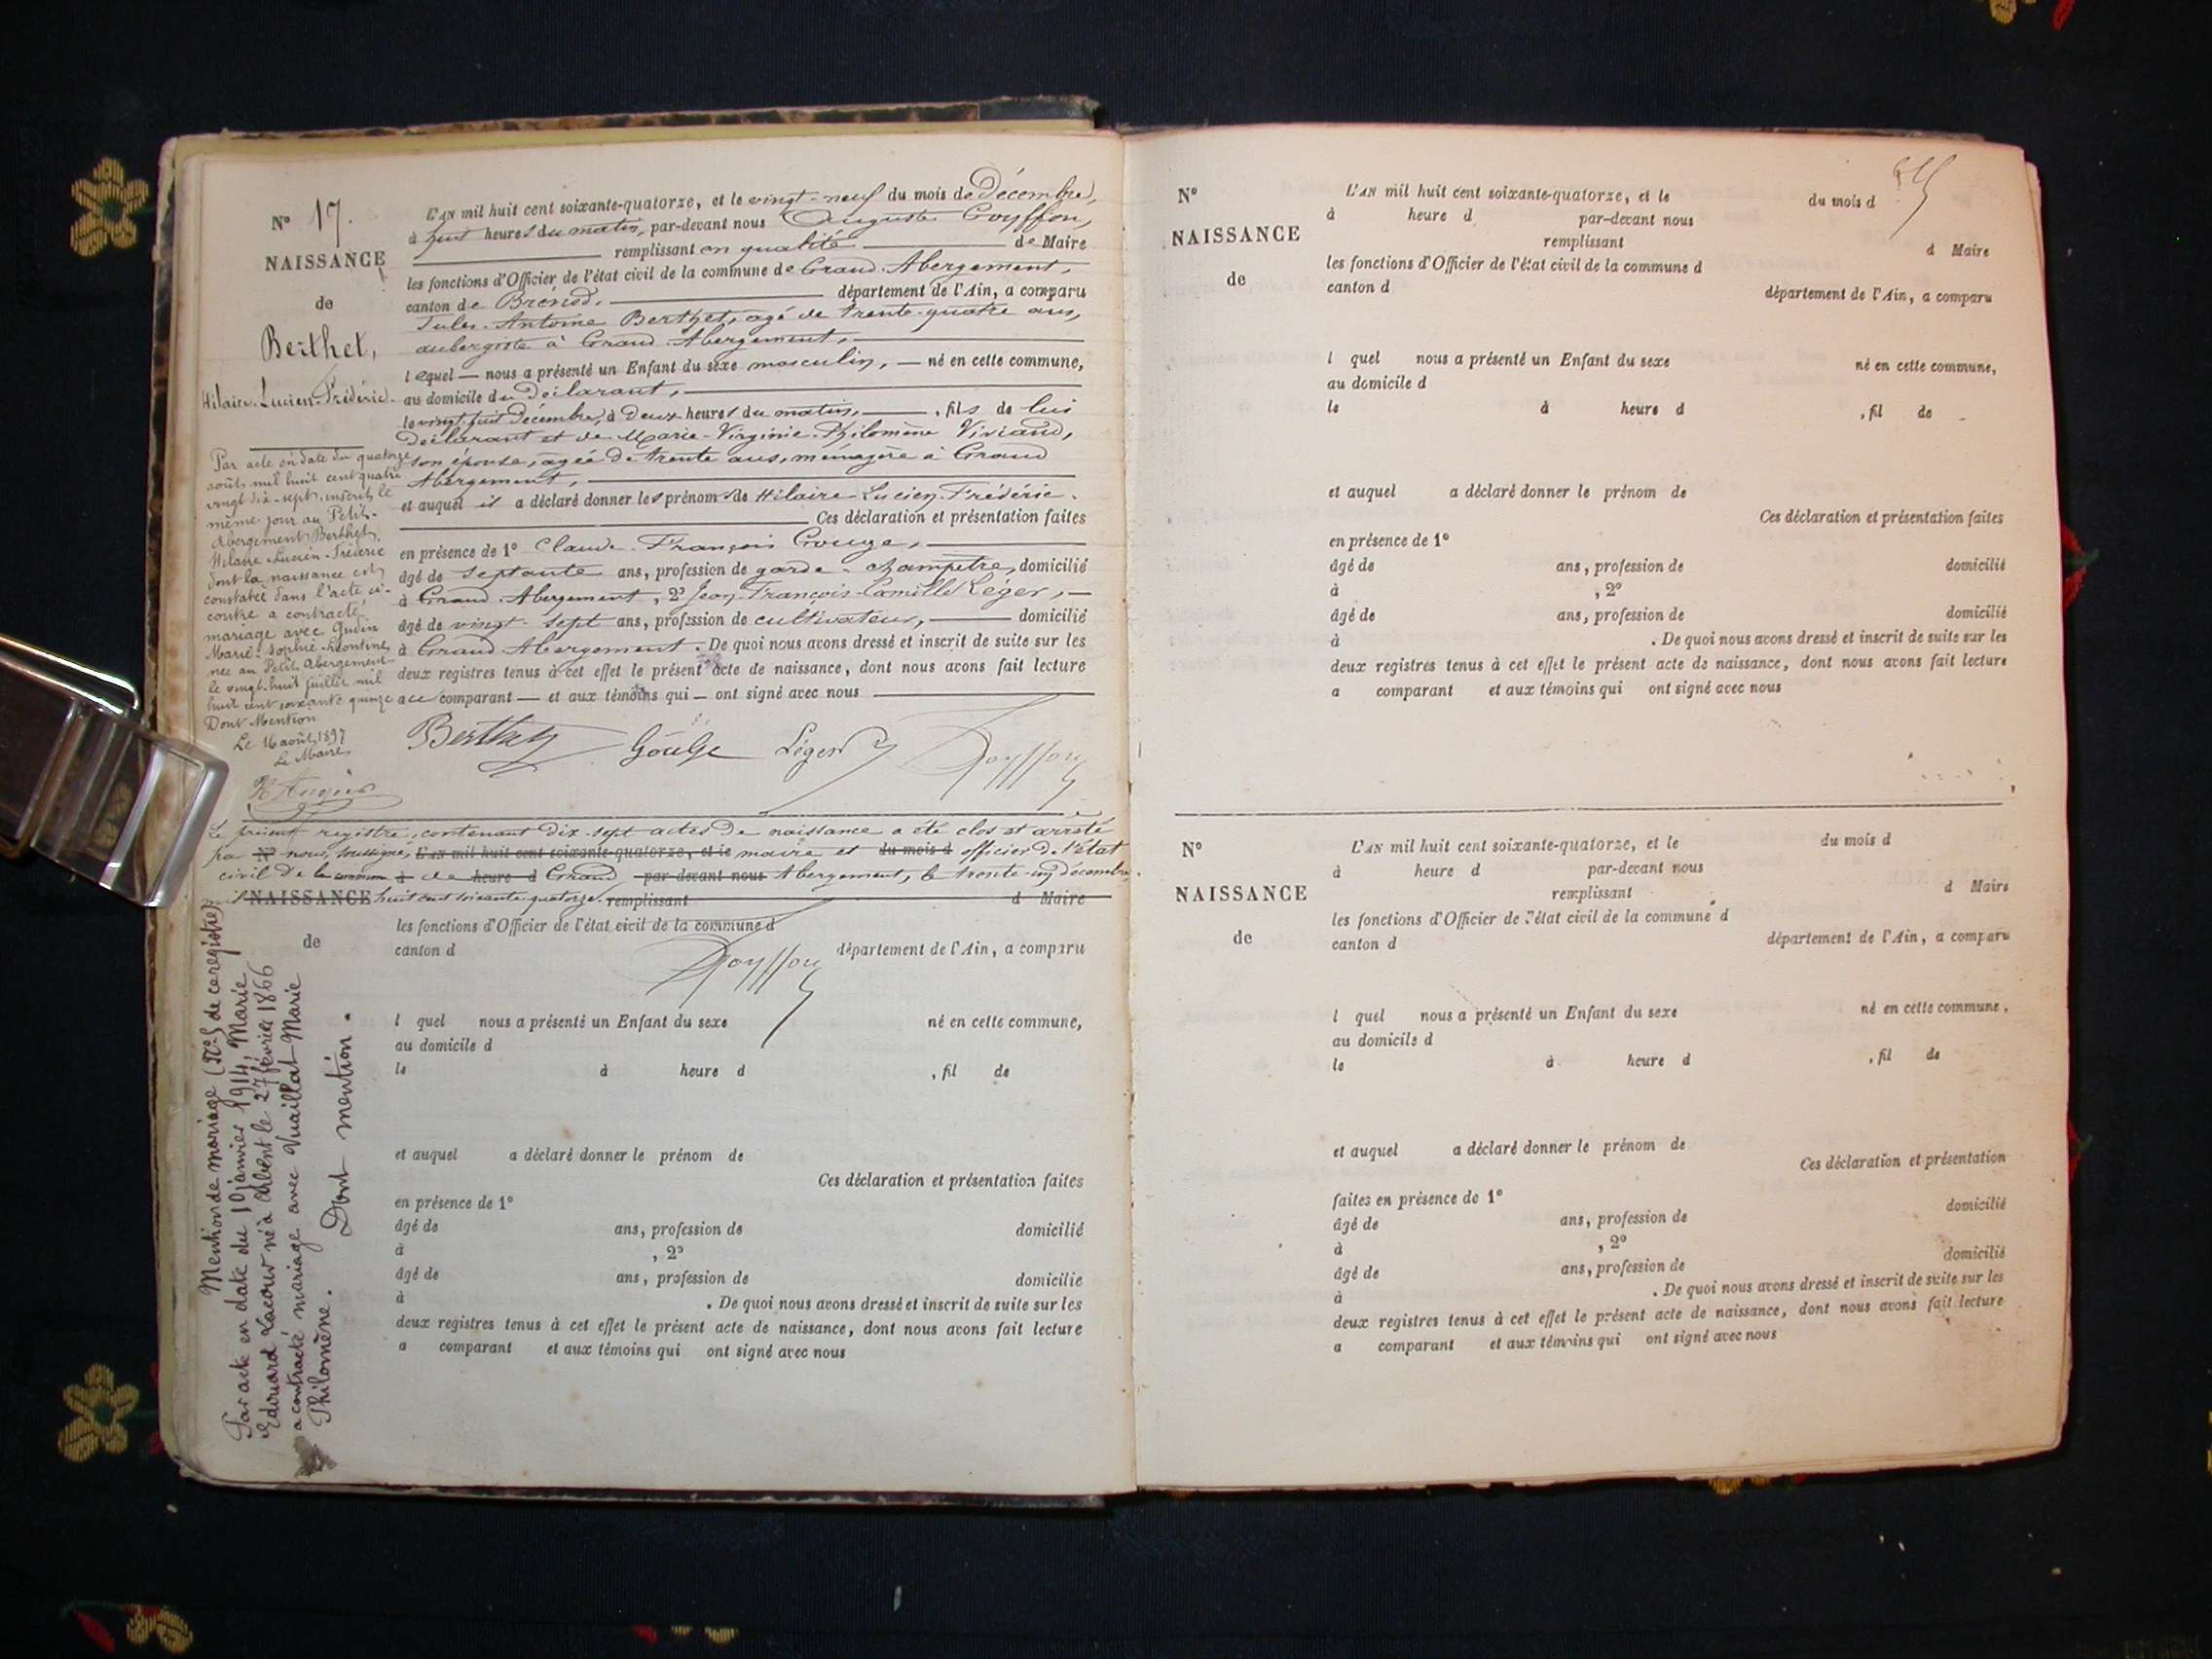 N° 17.
NAISSANCE
de
Berthet,
Hilaire-Lucien-Frédéric.
L'AN mil huit cent soixante-quatorze, et le vingt-neuf du mois de Décembre,
à huit heures du matin, par-devant nous Auguste Goyffon,
remplissant en qualité de Maire
les fonctions d'Officier de l'état civil de la commune de Grand-Abergement,
canton de Brénod, département de l'Ain, a comparu
Jules-Antoine Berthet, agé de trente-quatre ans,
aubergiste à Grand-Abergement,
lequel nous a présenté un Enfant du sexe masculin, né en cette commune,
au domicile du Déclarant,
le vingt-huit Décembre, à Deux heures du matin, fils de lui
Déclarant et de Marie-Virginie-Philomène Viviand,
son épouse, agée de trente ans, ménagère à Grand
Abergement,
et auquel il a déclaré donner les prénoms de Hilaire-Lucien-Frédéric.
Ces déclaration et présentation faites
en présence de 1° Claude-François Gouge,
âgé de septante ans, profession de garde-champêtre, domicilié
à Grand-Abergement, 2° Jean-François-Camille Léger,
âgé de vingt-sept ans, profession de cultivateur, domicilié
à Grand-Abergement. De quoi nous avons dressé et inscrit de suite sur les
deux registres tenus à cet effet le présent acte de naissance, dont nous avons fait lecture
au comparant et aux témoins qui ont signé avec nous
Berthet Gouge Léger Goyffon
Par acte en date du quatorze
août mil huit cent quatre
vingt dix-sept, inscrit le
même jour au Petit-
Abergement, Berthet,
Hilaire-Lucien-Frédéric
dont la naissance est
constatée dans l'acte ci-
contre a contracté
mariage avec
Marie-Sophie-Léontine
née au Petit Abergement
le vingt-huit juillet mil
huit cent soixante quinze
Dont Mention
Le 16 août 1897
Le Maire,
Le présent registre, contenant dix-sept actes de naissance a été clos et arrêté
par N° nous, soussigné, L'AN mil huit cent soixante-quatorze, et le maire et du mois d officier de l'état
civil de la commune à de heure d Grand par-devant nous Abergement, le trente-un décembre
mil NAISSANCE huit cent soixante quatorze. remplissant d Maire
de
les fonctions d'Officier de l'état civil de la commune d
canton d département de l'Ain, a comparu
Goyffon
l quel nous a présenté un Enfant du sexe né en cette commune,
au domicile d
le à heure d , fil de
et auquel a déclaré donner le prénom de
Ces déclaration et présentation faites
en présence de 1°
âgé de ans, profession de domicilié
à , 2°
âgé de ans, profession de domicilié
à . De quoi nous avons dressé et inscrit de suite sur les
deux registres tenus à cet effet le présent acte de naissance, dont nous avons fait lecture
a comparant et aux témoins qui ont signé avec nous
Mention de mariage (N° 5 de ce registre)
Par acte en date du 10 janvier 1914, Marie
Edouard Lacour né à Arbent le 27 février 1866
a contracté mariage avec Vuaillat Marie
Philomène. Dont mention.
N°
NAISSANCE
de
L'AN mil huit cent soixante-quatorze, et le du mois d
à heure d par-devant nous
remplissant d Maire
les fonctions d'Officier de l'état civil de la commune d
canton d département de l'Ain, a comparu
l quel nous a présenté un Enfant du sexe né en cette commune,
au domicile d
le à heure d , fil de
et auquel a déclaré donner le prénom de
Ces déclaration et présentation faites
en présence de 1°
âgé de ans, profession de domicilié
à , 2°
âgé de ans, profession de domicilié
à . De quoi nous avons dressé et inscrit de suite sur les
deux registres tenus à cet effet le présent acte de naissance, dont nous avons fait lecture
a comparant et aux témoins qui ont signé avec nous
N°
NAISSANCE
de
L'AN mil huit cent soixante-quatorze, et le du mois d
à heure d par-devant nous
remplissant d Maire
les fonctions d'Officier de l'état civil de la commune d
canton d département de l'Ain, a comparu
l quel nous a présenté un Enfant du sexe né en cette commune,
au domicile d
le à heure d , fil de
et auquel a déclaré donner le prénom de
Ces déclaration et présentation
faites en présence de 1° domicilié
âgé de ans, profession de
à , 2° domicilié
âgé de ans, profession de
à . De quoi nous avons dressé et inscrit de suite sur les
deux registres tenus à cet effet le présent acte de naissance, dont nous avons fait lecture
a comparant et aux témoins qui ont signé avec nous